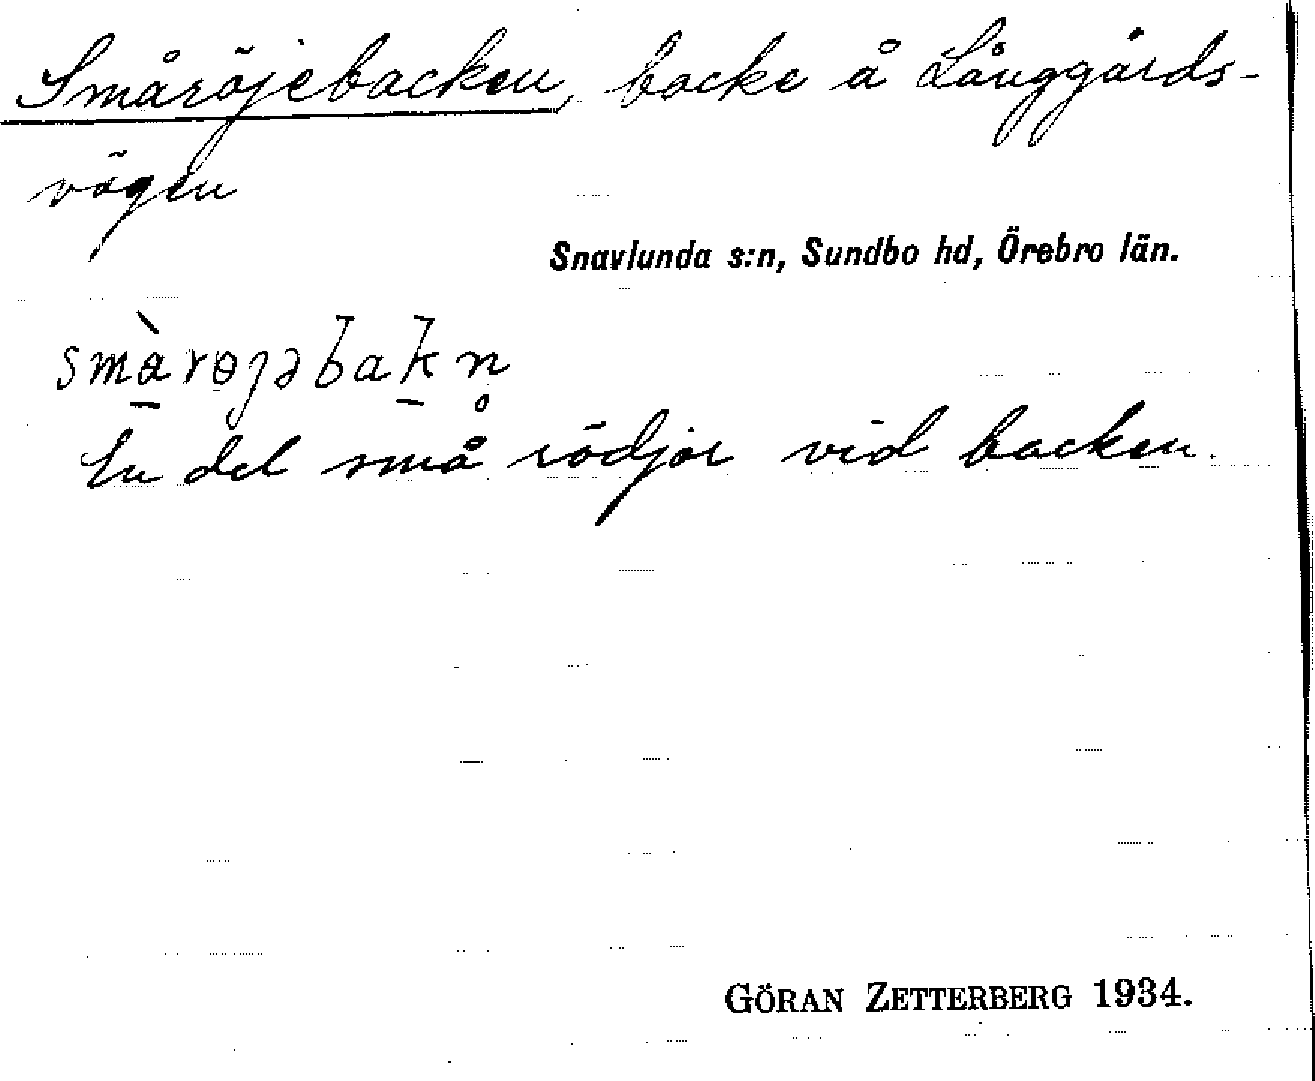 Småröjebacken, backe å Långgårds-
vägen
Snavlunda s:n, Sundbo hd, Örebro län.
smàrɵjəbakn̥
En del små rödjor vid backen.
GÖRAN ZETTERBERG 1934.